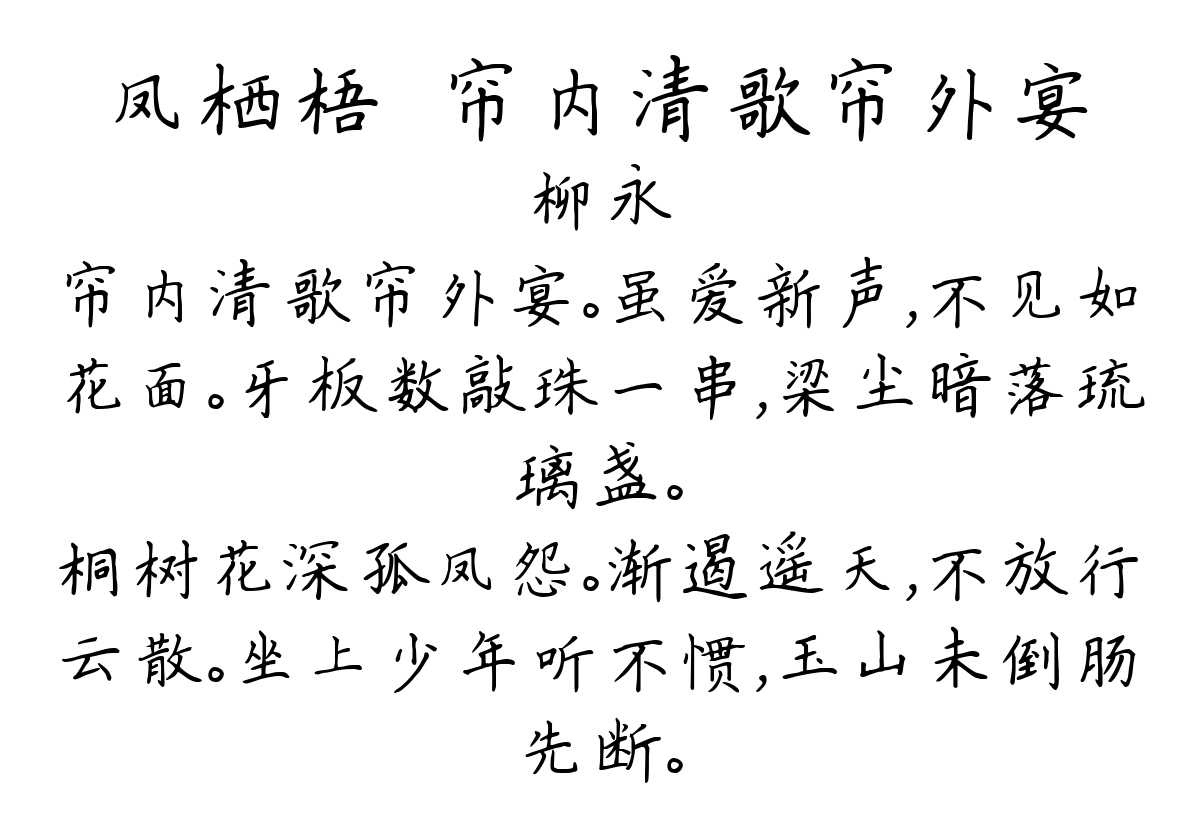 凤栖梧 帘内清歌帘外宴
柳永
帘内清歌帘外宴。虽爱新声,不见如
花面。牙板数敲珠一串,梁尘暗落琉
璃盏。
桐树花深孤凤怨。渐遏遥天,不放行
云散。坐上少年听不惯,玉山未倒肠
先断。